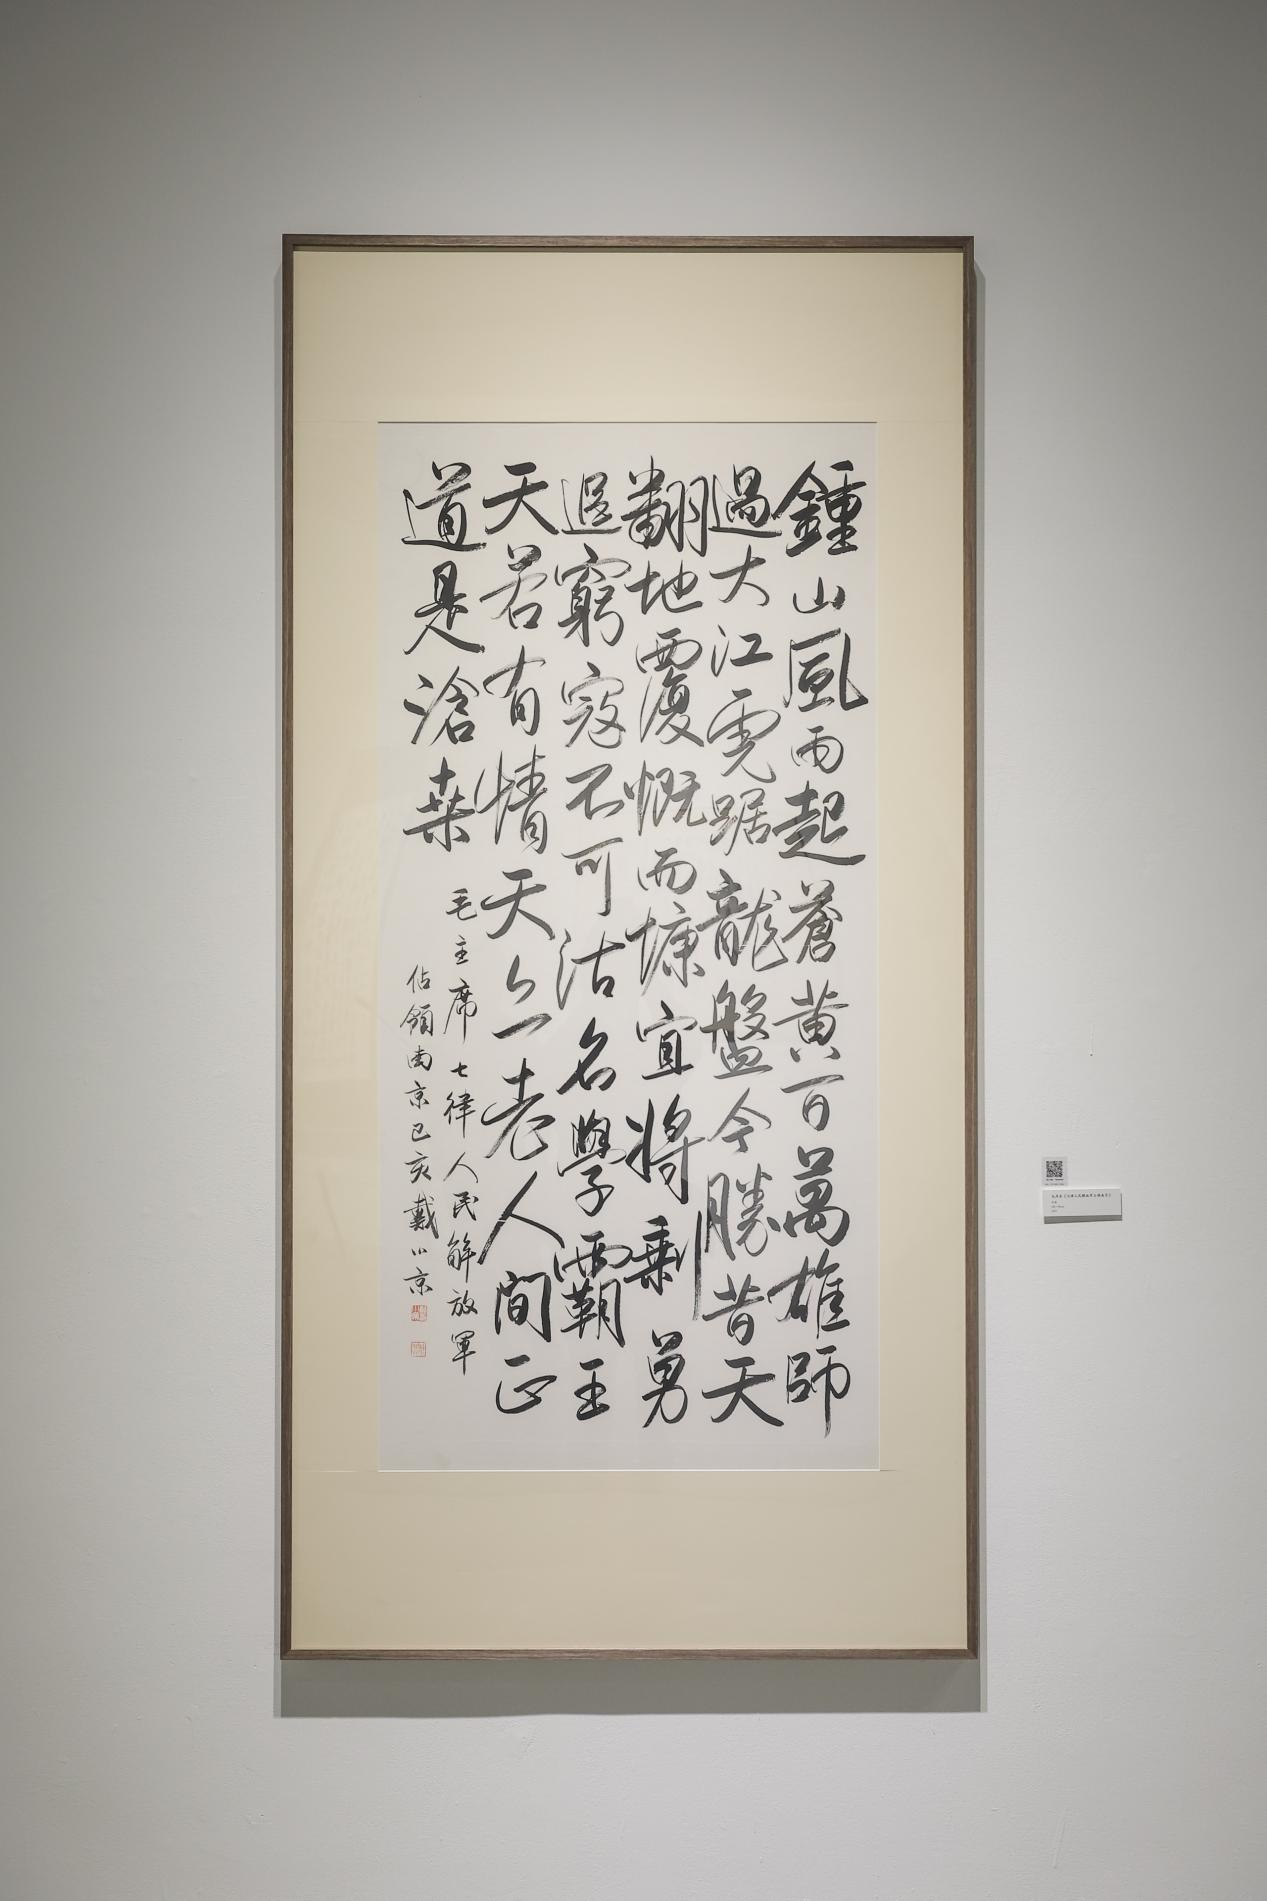 鍾山風雨起蒼黃百萬雄師
過大江虎踞龍盤今勝昔天
翻地覆慨而慷宜將剩勇
追窮寇不可沽名學霸王
天若有情天亦老人間正
道是滄桑
毛主席七律人民解放軍
佔領南京己亥戴小京